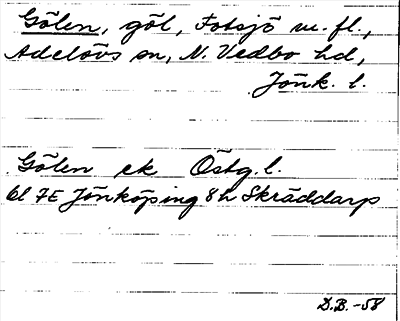 Gölen, göl, Fotsjö m. fl.,
Adelövs sn, N. Vedbo hd,
Jönk. l.
Gölen ek Östg. l.
bl 7E Jönköping 8h Skräddarp
D.B. -58